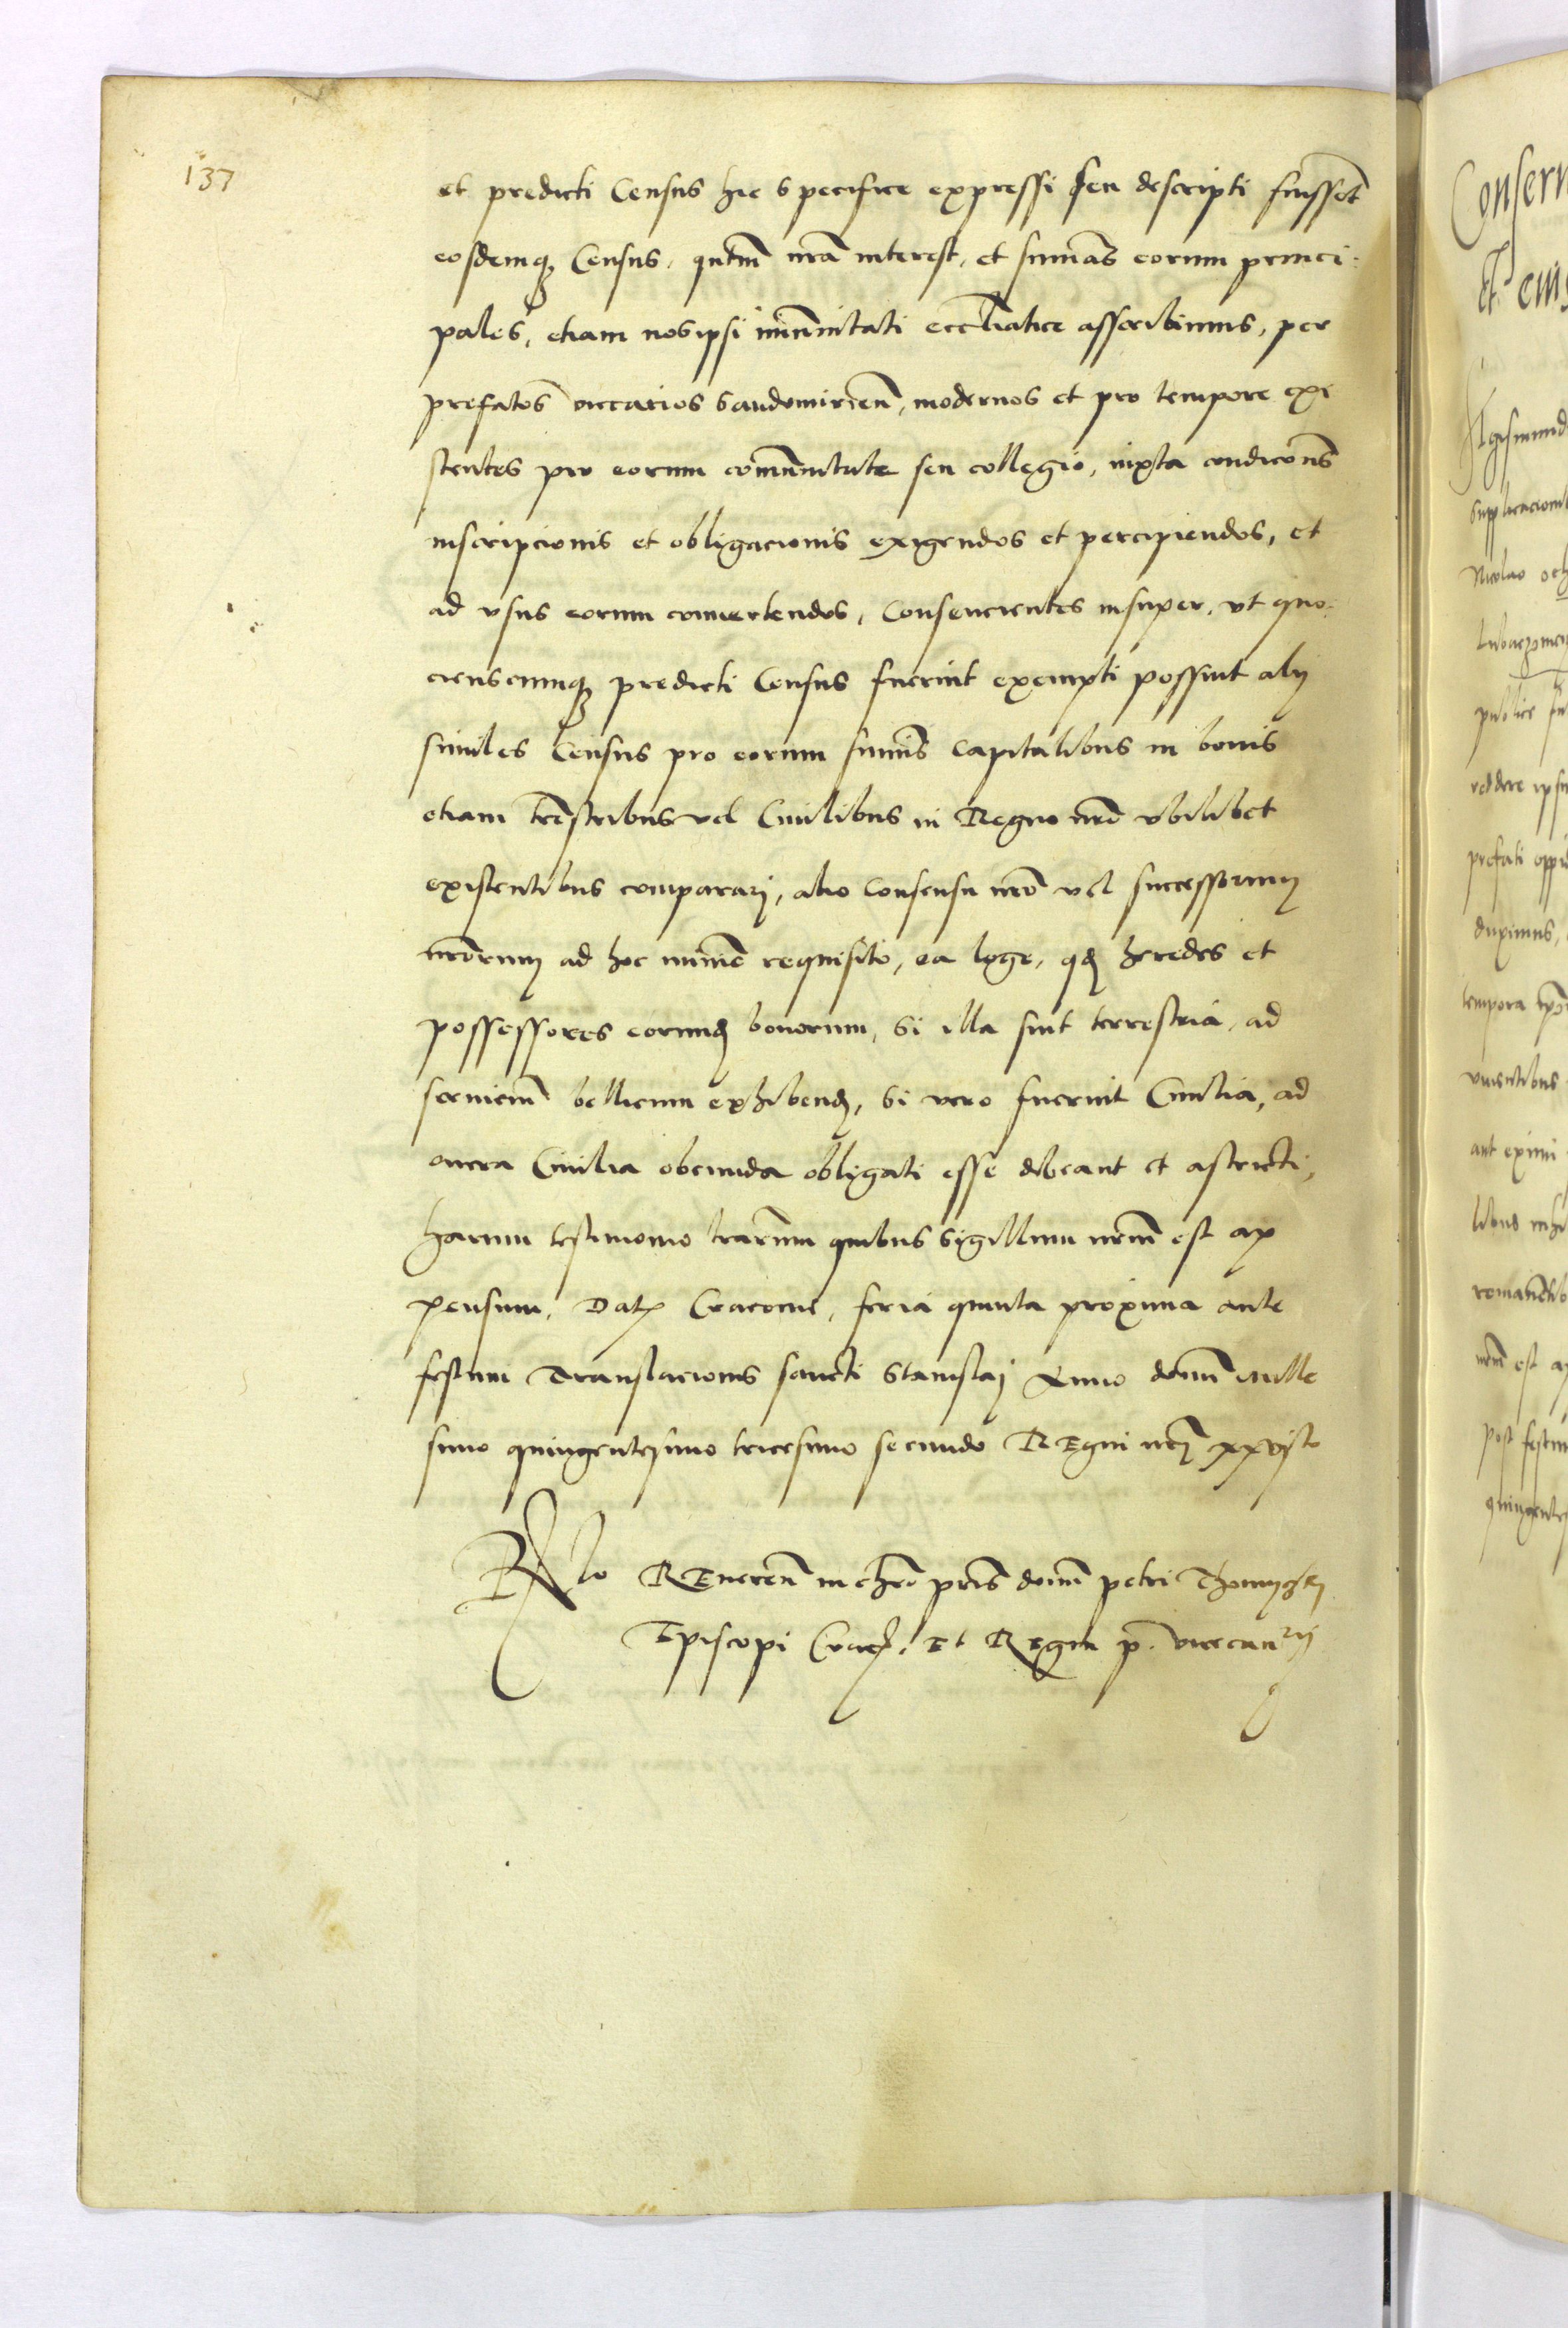 137
et predicti Census hic specifice expressi seu descripti fuissēt
eosdemq3 Census, qntm̄ nrā interest, et sum̄as eorum princi:
pales, etiam nos ipsi im̄unitati eccl̄iatice asscribimus, per
prefatos viccarios Sandomirien̄, modernos et pro tempore exi
stentes pro eorum com̄unitate seu collegio, iuxta condicōns
inscripcionis et obligacionis exigendos et percipiendos, et
ad vsus eorum convertendos, Consencientes insuper, vt quo:
cienscumq3 predicti Census fuerint exempti possint alij
similes Census pro eorum sum̄is capitalibus in bonis
etiam tr̄estribus vel Ciuilibus in Regno nr̄o vbilibet
existentibus comparari, alio Consensu nr̄o vel successorum
nr̄orum ad hoc minime requisito, ea lege, qd heredes et
possessores eorund bonorum, si illa sint terrestria, ad
seruicium̄ bellicum exhibend, si vero fuerint Ciuilia, ad
onera Ciuilia obeunda obligati esse debeant et astricti,
harum testimonio lrārum quibus Sigillum nrm̄ est ap
pensum, Dat Cracouie, feria quinta proxima ante
festum Translacionis sancti Stanislaj Anno domi̅ mille
simo quingentesimo tricesimo secundo REgni nrī xxvjto
Rlo REueren̄ in chrō pris̄ domi̅ petri Thomiczki
Episcopi Crac. Et Regni p. vicecanrij
Conserv
Et eiu
Sigismund
Supplicacioni
Nicolao och
publice
reddere ipsu
prefati oppid
duximus,
tempora
viuentibus
aut eximi
libus
romanen
nrm̄ est ap
post festu
quingente